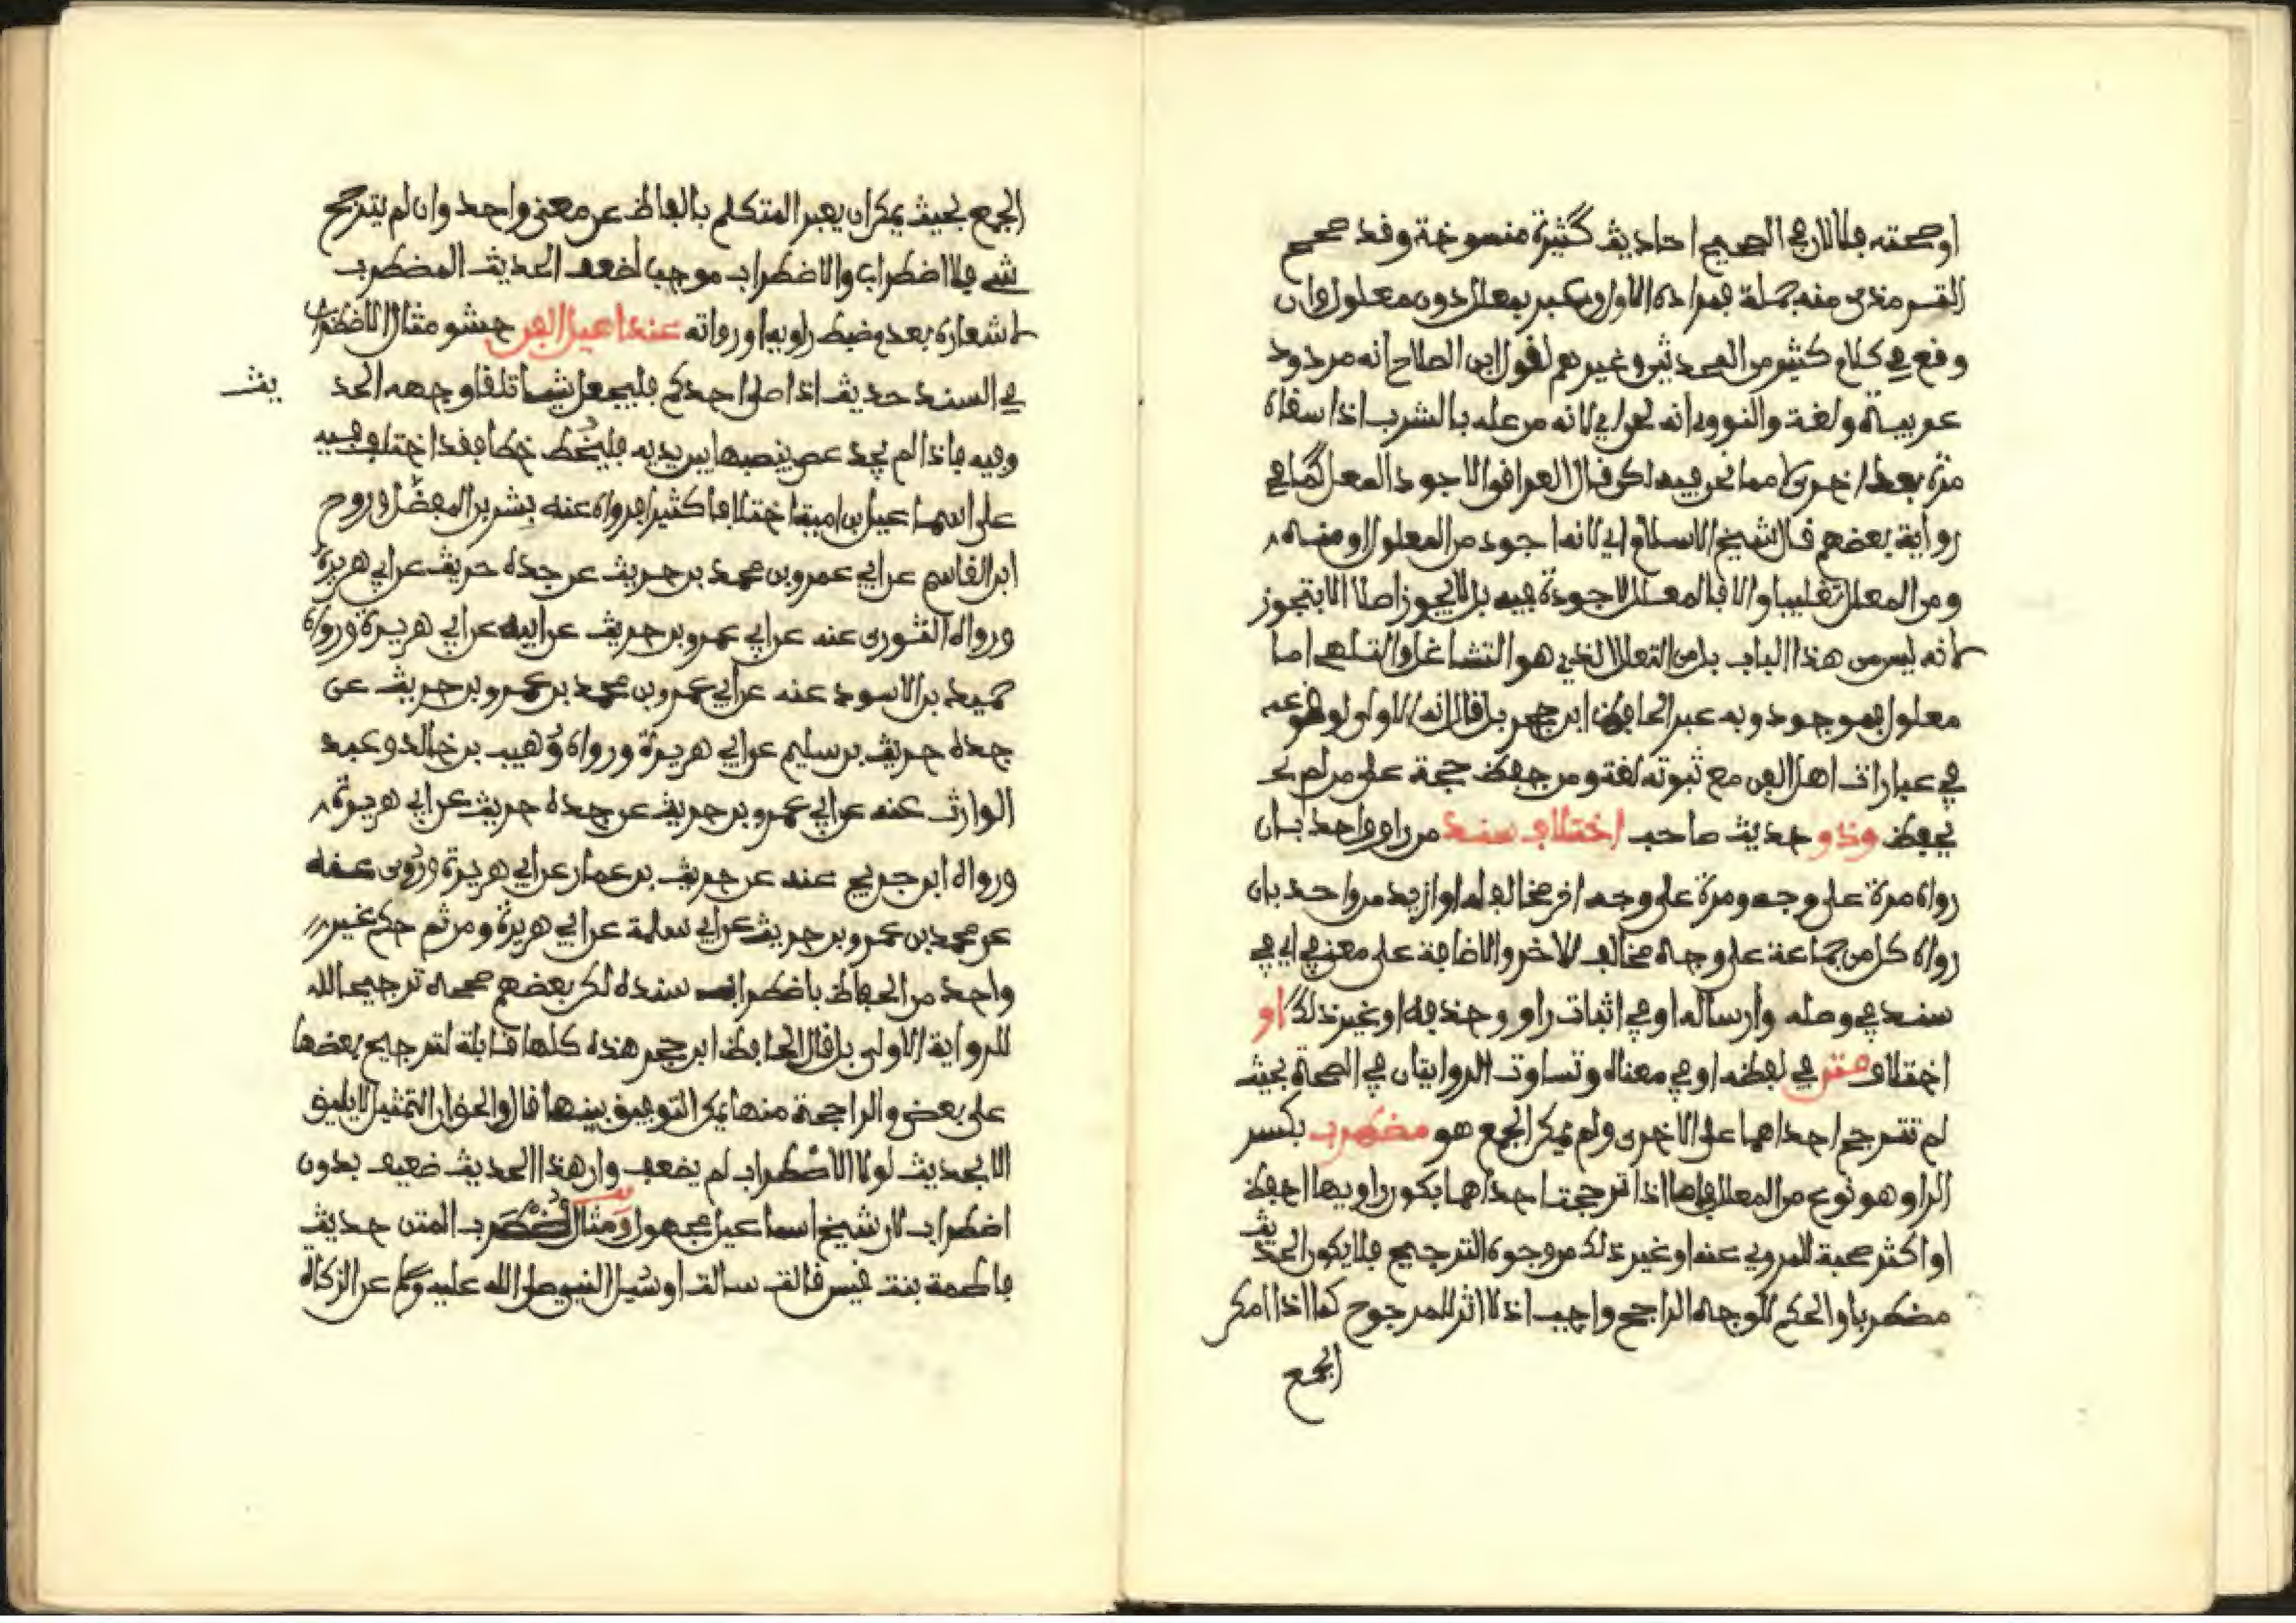 او صحته فلا لان في الصحيح احاديث كثيرة منسوخة وقد صحح
الترمذي منه جملة فمراده الاول وعبر بمعلل دون معلول وان
وقع في كلام كثير من المحدثين وغيرهم لقول ابن الصلاح انه مردود
عربية ولغة والنووي انه لحن اي لانه من عله بالشرب اذا سقاه
مرة بعد اخرى لا مما نحن فيه لكن قال العراقي والاجود المعل كما في
رواية بعضهم قال شيخ الاسلام اي لانه اجود من المعلول او منه
ومن المعلل تغليبا والا فالمعلل لا جودة فيه بل لا يجوز اصلا الا بتجوز
لانه ليس من هذا الباب بل من التعلل الذي هو التشاغل والتلهي اما
معلول فموجود وبه عبر الحافظ ابن حجر بل قال انه الاولى لوقوعه
في عبارات اهل الفن مع ثبوته لغة ومن حفظ حجة على من لم يح
يحفظ وذو حديث صاحب اختلاف سند من راو واحد بان
رواه مرة على وجه ومرة على وجه اخر مخالف له او ازيد من واحد بان
رواه كل من جماعة على وجه مخالف للاخر والاضافة على معنى في اي في
سند في وصله وارساله او في اثبات راو وحذفه او غير ذلك او
اختلاف متن في لفظه او في معناه وتساوت الروايتان في الصحة بحيث
لم تترجح احداهما على الاخرى ولم يمكن الجمع هو مضطرب بكسر
الراء وهو نوع من المعلل فاما اذا ترجحت احداهما بكون راويها احفظ
او اكثر صحبة للمروي عنه او غير ذلك من وجوه الترجيح فلا يكون الحديث
مضطربا والحكم للوجه الراجح واجب اذ لا اثر للمرجوح كما اذا امكن
الجمع
الجمع بحيث يمكن ان يعبر المتكلم بالفاظ عن معنى واحد وان لم يترجح
شي فلا اضطراب والاضطراب موجب لضعف الحديث المضطرب
لاشعاره بعدم ضبط راويه او رواته عند اهيل الفن حشو مثال الاضطراب
في السند حديث اذا صلى احدكم فليجعل شيا تلقا وجهه الحديث
وفيه فاذا لم يجد عصى ينصبها بين يديه فليخط خطا فقد اختلف فيه
على اسماعيل بن امية اختلافا كثيرا فرواه عنه بشر بن المفضل وروح
ابن القاسم عن ابي عمرو بن محمد بن حريث عن جده حريث عن ابي هريرة
ورواه الثوري عنه عن ابي عمرو بن حريث عن ابيه عن ابي هريرة ورواه
حميد بن الاسود عنه عن ابي عمرو بن محمد بن عمرو بن حريث عن
جده حريث بن سليم عن ابي هريرة ورواه وهيب بن خالد وعبد
الوارث عنه عن ابي عمرو بن حريث عن جده حريث عن ابي هريرة
ورواه ابن جريج عنه عن حريث بن عمار عن ابي هريرة وروى عنه
عن محمد بن عمرو بن حريث عن ابي سلمة عن ابي هريرة ومن ثم حكم غير
واحد من الحفاظ باضطراب سنده لكن بعضهم صححه ترجيحا لله
للرواية الاولى بل قال الحافظ ابن حجر هذه كلها قابلة لترجيح بعضها
على بعض والراجحة منها يمكن التوفيق بينها قال والحق ان التمثيل لا يليق
الا بحديث لولا الاضطراب لم يضعف وان هذا الحديث ضعيف بدون
اضطراب لان شيخ اسماعيل مجهول ومثال مضطرب المتن حديث
فاطمة بنت قيس قالت سالت او سئل النبي صلى الله عليه وسلم عن الزكاة